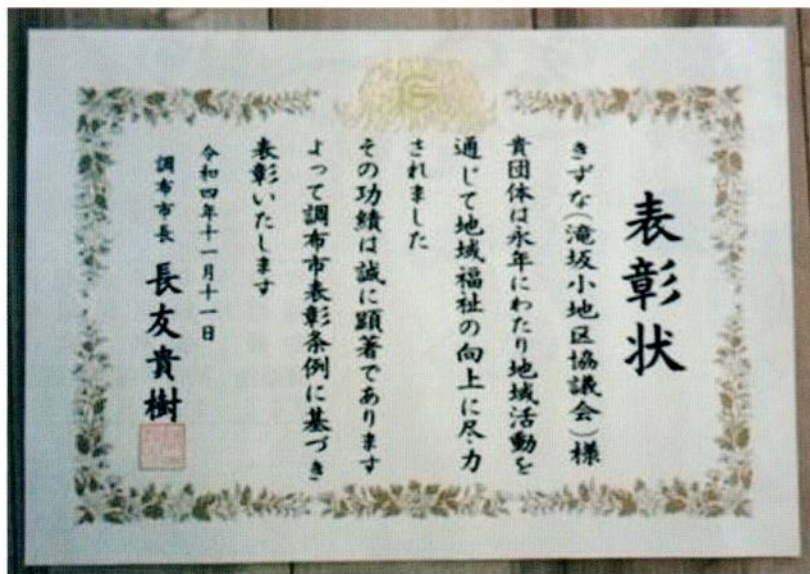 表彰状
きずな(滝坂小地区協議会)様
貴団体は永年にわたり地域活動を
通じて地域福祉の向上に尽力
されました
その功績は誠に顕著であります
よって調布市表彰条例に基づき
表彰いたします
令和四年十一月十一日
調布市長 長友貴樹